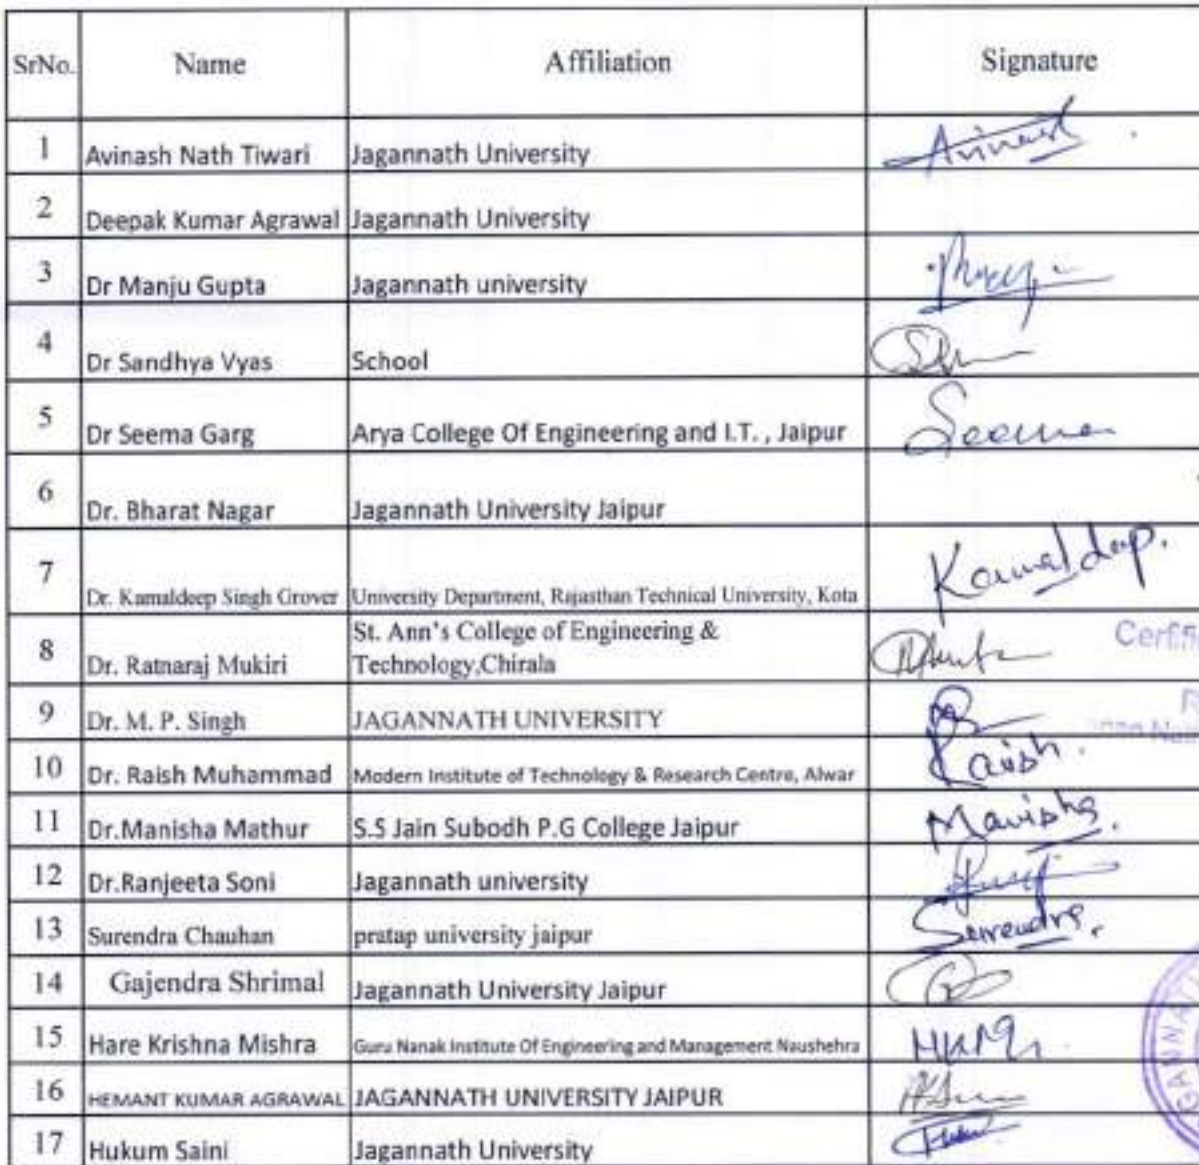 SrNo. Name Affiliation Signature
1 Avinash Nath Tiwari Jagannath University Avinash
2 Deepak Kumar Agrawal Jagannath University
3 Dr Manju Gupta Jagannath university
4 Dr Sandhya Vyas School
5 Dr Seema Garg Arya College Of Engineering and I.T. , Jaipur Seema
6 Dr. Bharat Nagar Jagannath University Jaipur
7 Dr. Kamaldeep Singh Grover University Department, Rajasthan Technical University, Kota Kamaldeep.
8 Dr. Ratnaraj Mukiri St. Ann's College of Engineering &
Technology,Chirala
9 Dr. M. P. Singh JAGANNATH UNIVERSITY
10 Dr. Raish Muhammad Modern Institute of Technology & Research Centre, Alwar Raish.
11 Dr.Manisha Mathur S.S Jain Subodh P.G College Jaipur Manisha.
12 Dr.Ranjeeta Soni Jagannath university
13 Surendra Chauhan pratap university jaipur Surendra.
14 Gajendra Shrimal Jagannath University Jaipur
15 Hare Krishna Mishra Guru Nanak Institute Of Engineering and Management Naushehra
16 HEMANT KUMAR AGRAWAL JAGANNATH UNIVERSITY JAIPUR
17 Hukum Saini Jagannath University